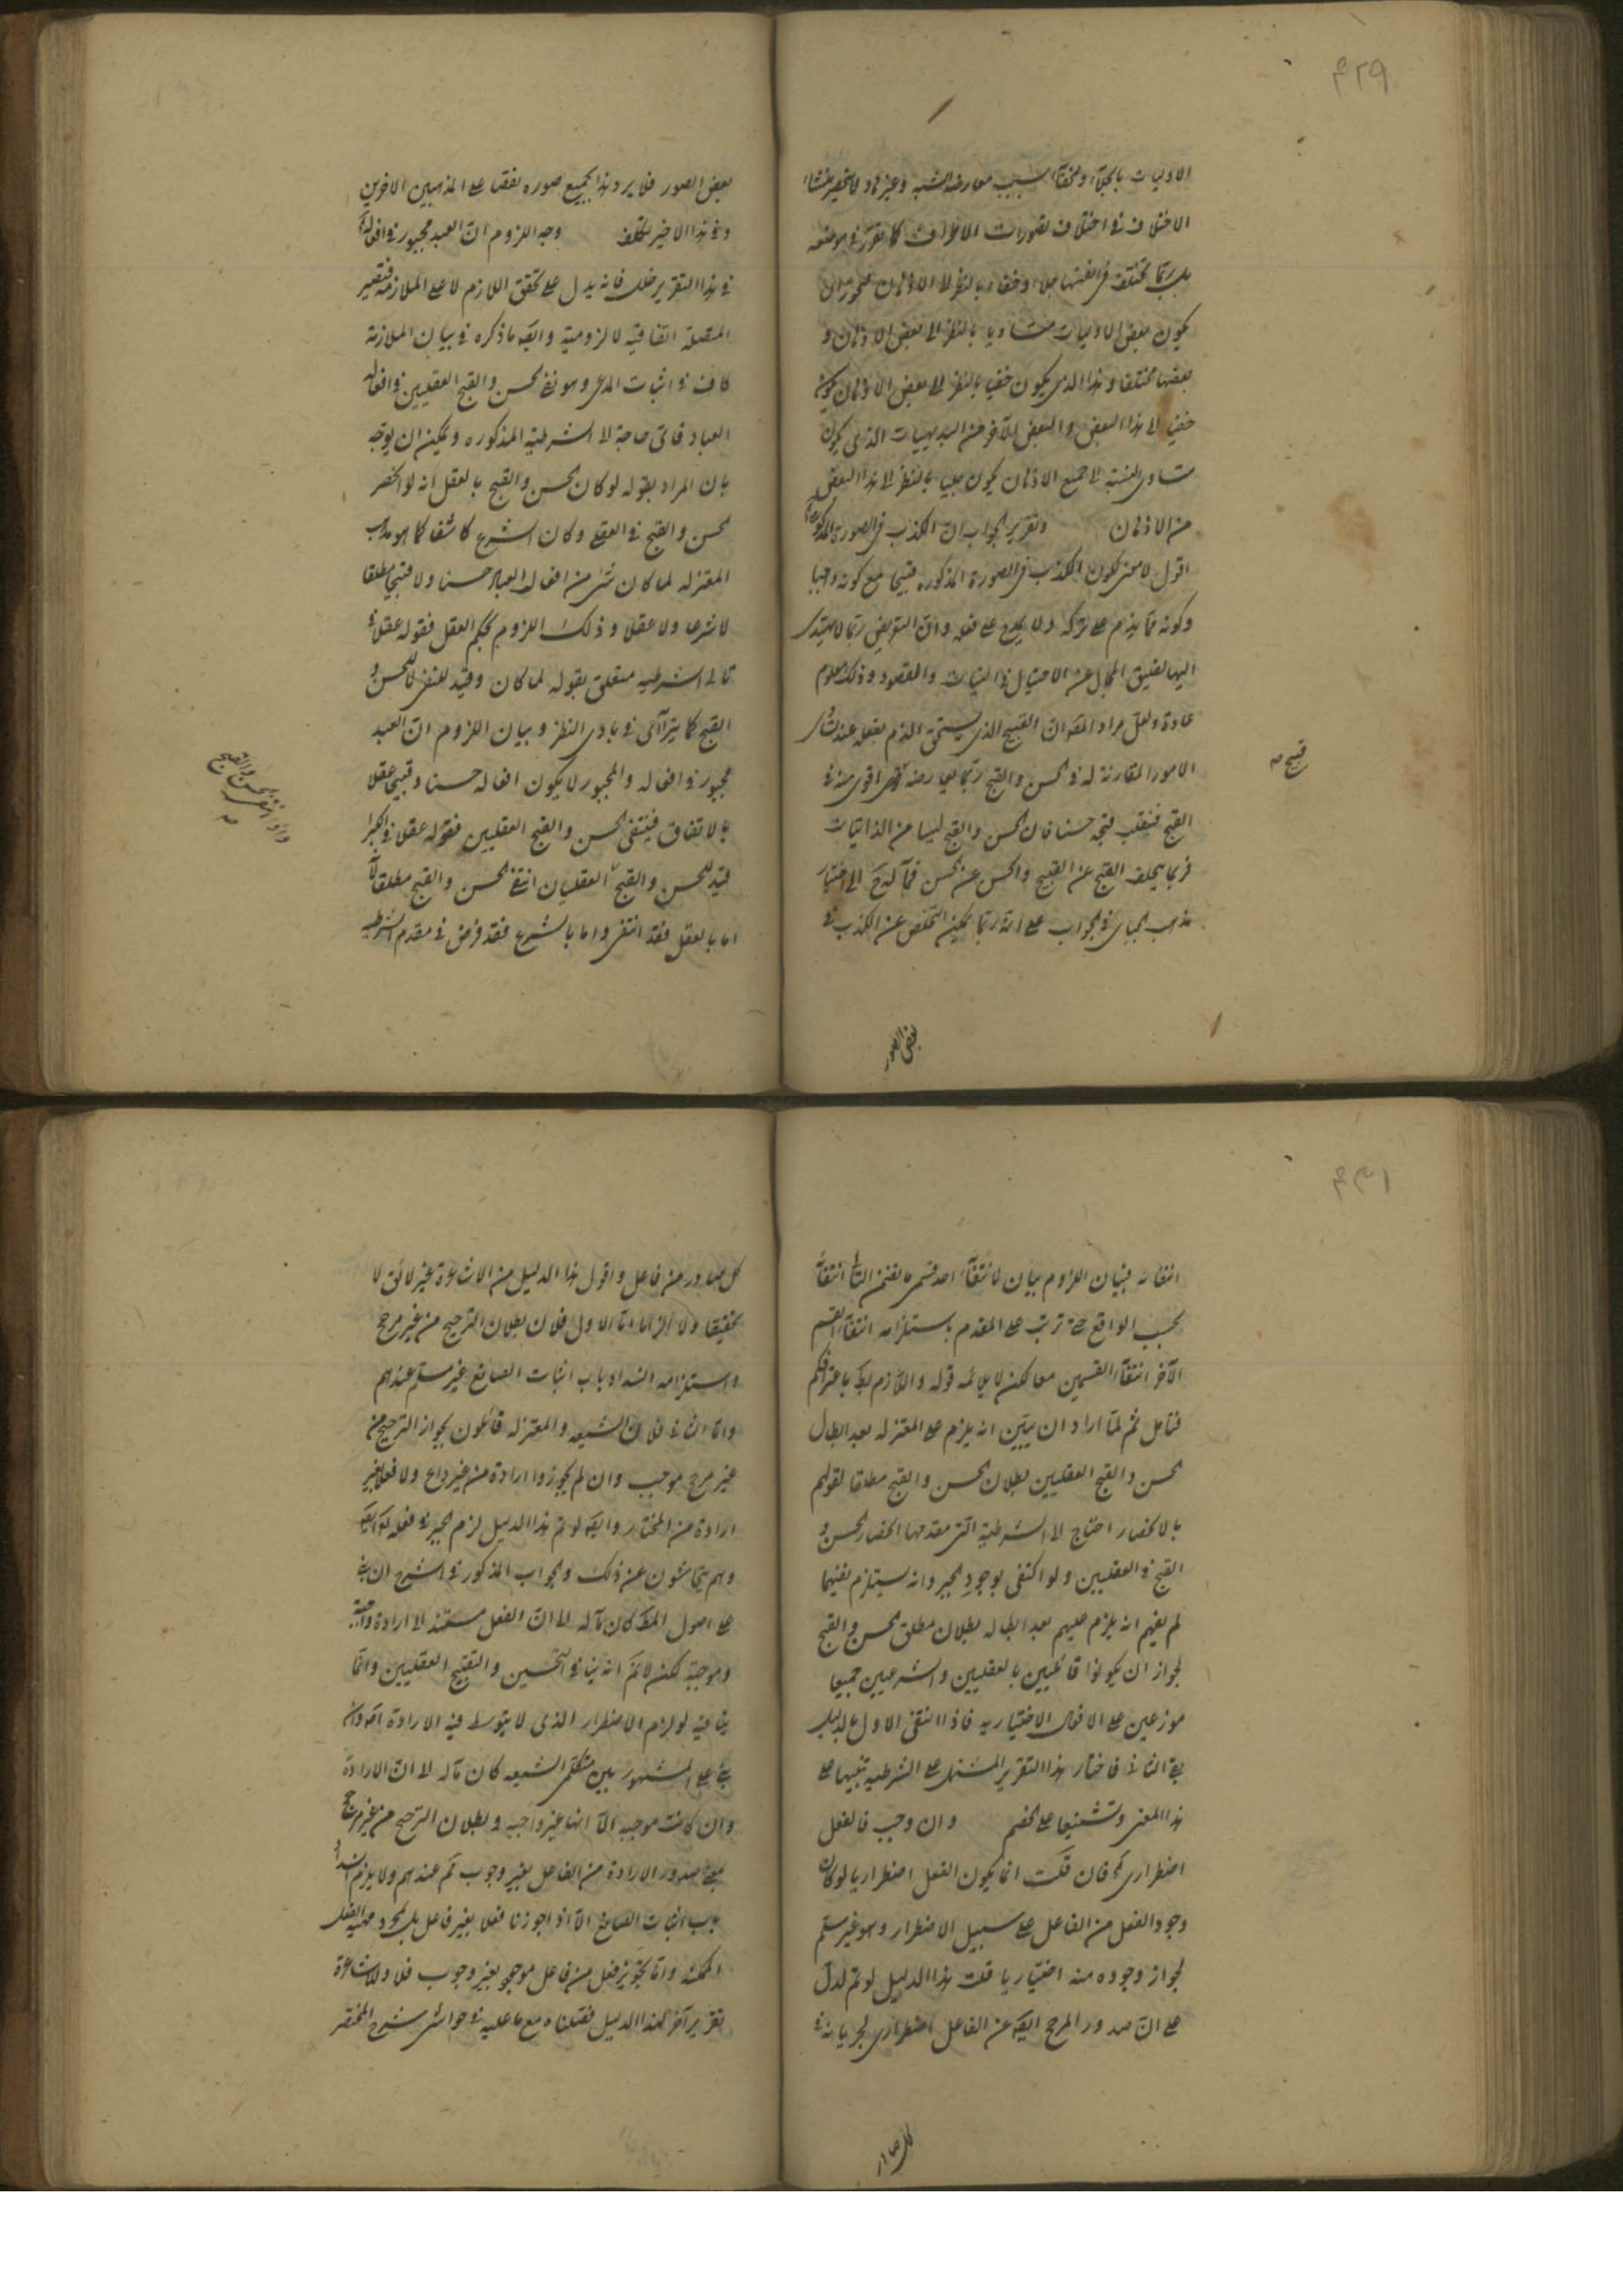 ۴۲۹
الاوليات بالجلاء والخفاء بسبب معارضة الشبه وغيرها ولا ينحصر منشاء
الاختلاف في اختلاف تصورات الاطراف كما تقرر في موضعه
بل ربما تختلف في انفسها جلاء وخفاء بالنظر الى الاذهان فيجوز ان
يكون بعض الاوليات متساويا بالنظر الى بعض الاذهان و
بعضها مختلفا وهذا الذي يكون خفيا بالنظر الى بعض الاذهان يكون
خفيا الى هذا البعض والبعض الآخر من البديهيات الذي يكون
متساوى النسبة الى جميع الاذهان يكون جليا بالنظر الى هذا البعض
من الاذهان وتقرير الجواب ان الكذب في الصورة المذكورة
اقول لا معنى لكون الكذب في الصورة المذكورة قبيحا مع كونه واجبا
وكونه مما يذم على تركه ولا يمدح على فعله وان التعريض ربما لا يهتدى
اليها لضيق المجال عن الاحتيال في النيات والقصود وذلك معلوم
عادة ولعل مراد المصنف ان القبيح الذي يستحق الذم بفعله عند
الامور المقارنة له في الحسن والقبح ربما يعارضه اقوى منه في
القبح فينقلب قبحه حسنا فان الحسن والقبح ليسا من الذاتيات
فربما يتخلف القبح عن القبيح والحسن عن الحسن فمآله الى اختيار
مذهب الجبائي في الجواب على انه ربما يمكن التخلص عن الكذب في
قبيح صح
بعض الصور
بعض الصور فلا يرد هذا بجميع صوره نقضا على المذهبين الاخرين
وفي هذا الاخير تكلف وجه اللزوم ان العبد مجبور في افعاله
في هذا التقرير خلل فانه يدل على تحقق اللازم لا على الملازمة فتصير
المتصلة اتفاقية لا لزومية وايضا ما ذكره في بيان الملازمة
كاف في اثبات المدعى وهو نفي الحسن والقبح العقليين في افعال
العباد فاي حاجة الى الشرطية المذكورة ويمكن ان يوجه
بان المراد بقوله لو كان الحسن والقبح بالعقل انه لو انحصر
الحسن والقبح في العقلي وكان الشرع كاشفا كما هو مذهب
المعتزلة لما كان شئ من افعال العباد حسنا ولا قبيحا مطلقا
لا شرعا ولا عقلا وذلك اللزوم بحكم العقل فقوله عقلا في
تالى الشرطيه متعلق بقوله لما كان وقيد للنفى لا للحسن و
القبح كما يتراآى في بادى النظر وبيان اللزوم ان العبد
مجبور في افعاله والمجبور لا يكون افعاله حسنا وقبيحا عقلا
بالاتفاق فينتفى الحسن والقبح العقليين فقوله عقلا في الكبرى
قيد للحسن والقبح العقليان انتفى الحسن والقبح مطلقا لانه
اما بالعقل فقد انتفى واما بالشرع فقد فرض في مقدم الشرطيه
واذا انتفى الحسن والقبح صح
۴۳۱
انتفائه فبيان اللزوم بيان لانتفاء احد قسمى ما تضمن التالى انتفاء
بحسب الواقع حتى ترتب على المقدم باستلزامه انتفاء القسم
الآخر انتفاء القسمين معا لكن لا يلائمه قوله واللازم بط باعترافكم
فتأمل ثم لما اراد ان يبين انه يلزم على المعتزله بعد ابطال
الحسن والقبح العقليين بطلان الحسن والقبح مطلقا لقولهم
بالانحصار احتاج الى الشرطية التى مقدمها انحصار الحسن و
القبح في العقليين ولو اكتفى بوجود الجبر وانه يستلزم نفيهما
لم يفهم انه يلزم عليهم بعد ابطاله بطلان مطلق الحسن والقبح
لجواز ان يكونوا قائلين بالعقليين والشرعيين جميعا
موزعين على الافعال الاختياريه فاذا انتفى الاول بالدليل
بقى الثانى فاختار هذا التقرير المشتمل على الشرطيه تنبيها على
هذا المعنى وتشنيعا على الخصم وان وجب فالفعل
اضطرارى فان قلت انما يكون الفعل اضطراريا لو كان
وجود الفعل من الفاعل على سبيل الاضطرار وهو غير مسلم
لجواز وجوده منه اختياريا قلت هذا الدليل لو تم لدل
على ان صدور المرجح ايضا عن الفاعل اضطرارى لجريانه في
كل صادر
كل صادر من فاعل واقول هذا الدليل من الاشاعرة غير لائق لا
تحقيقا ولا الزاما اما الاول فلان بطلان الترجيح من غير مرجح
واستلزامه انسداد باب اثبات الصانع غير مسلم عندهم
واما الثانى فلان الشيعه والمعتزله قائلون بجواز الترجيح من
غير مرجح موجب وان لم يجوزوا ارادة من غير داع ولا فعلا بغير
ارادة من المختار وايضا لو تم هذا الدليل لزم الجبر في فعله تعالى ايضا
وهم يتحاشون عن ذلك والجواب المذكور في الشرح ان بنى
على اصول الحكماء كان مآله الى ان الفعل مستند الى ارادة واجبة
وموجبة لكن لا نم انه ينافى التحسين والتقبيح العقليين وانما
ينافيه لو لزم الاضطرار الذى لا يتوسط فيه الارادة اقول وان
بنى على المشهور بين متكلمى الشيعه كان مآله الى ان الارادة
وان كانت موجبه الا انها غير واجبه وبطلان الترجيح من غير مرجح
بمعنى صدور الارادة من الفاعل بغير وجوب نم عندهم ولا يلزم انسداد
باب اثبات الصانع الا اذا جوزنا فعلا بغير فاعل بل بمجرد مهية الفعل
الممكنه واما تجويز فعل من فاعل موجود بغير وجوب فلا وللاشاعرة
تقرير آخر لهذا الدليل فصلناه مع ما عليه في حواشى شرح المختصر